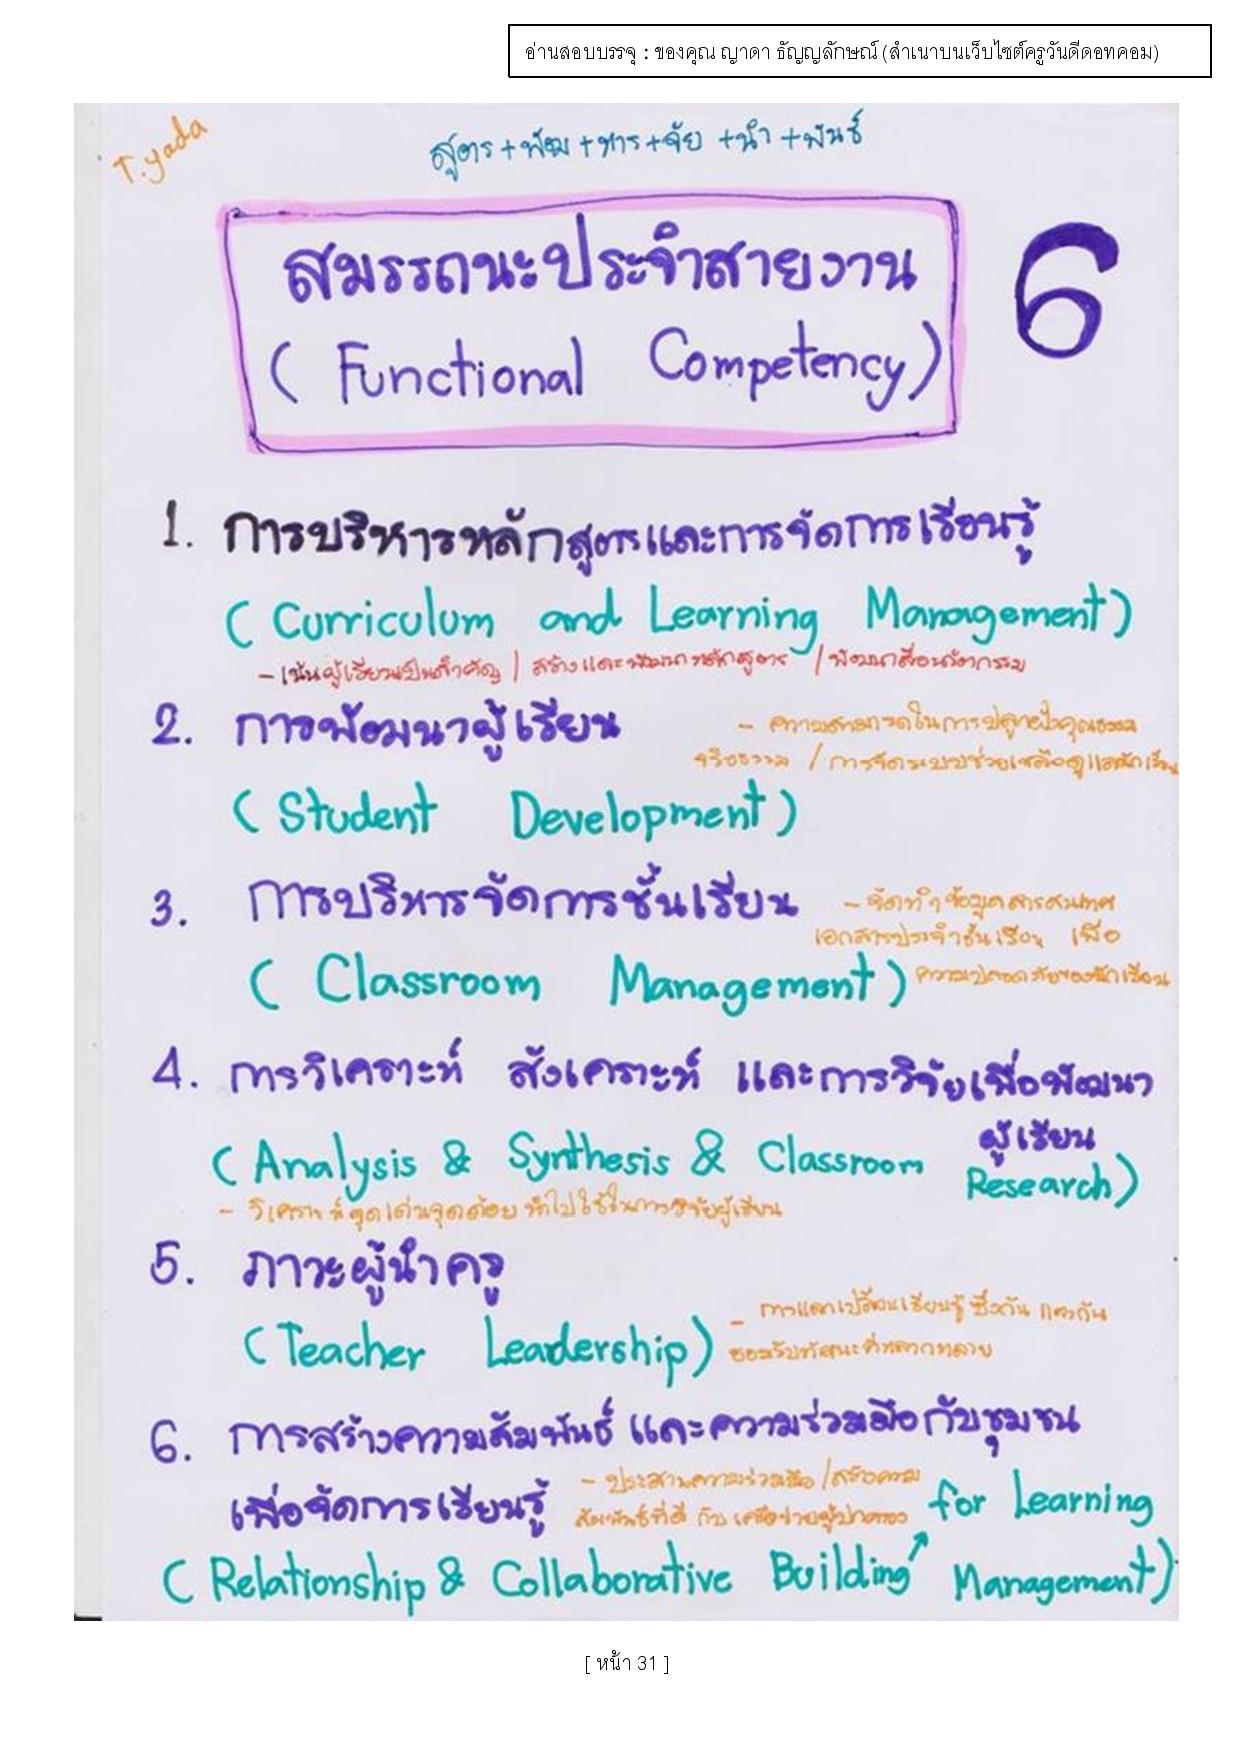 อ่านสอบบรรจุ : ของคุณ ญาดา ธัญญลักษณ์ (สำเนาบนเว็บไซต์ครูวันดีดอทคอม)
T.yada
สูตร+พัฒ+หาร+จัย +นำ +พันธ์
สมรรถนะประจำสายงาน
( Functional Competency)
6
1. การบริหารหลักสูตรและการจัดการเรียนรู้
( Curriculum and Learning Management)
- เน้นผู้เรียนเป็นสำคัญ / สร้างและพัฒนาหลักสูตร / พัฒนาสื่อนวัตกรรม
2. การพัฒนาผู้เรียน
- ความสามารถในการปลูกฝังคุณธรรม
จริยธรรม / การจัดระบบช่วยเหลือดูแลนักเรียน
( Student Development)
3. การบริหารจัดการชั้นเรียน
- จัดทำข้อมูลสารสนเทศ
เอกสารประจำชั้นเรียน เพื่อ
( Classroom Management) ความปลอดภัยของนักเรียน
4. การวิเคราะห์ สังเคราะห์ และการวิจัยเพื่อพัฒนา
ผู้เรียน
( Analysis & Synthesis & Classroom Research)
- วิเคราะห์จุดเด่นจุดด้อย นำไปใช้ในการวิจัยผู้เรียน
5. ภาวะผู้นำครู
- การแลกเปลี่ยนเรียนรู้ ซึ่งกัน และกัน
(Teacher Leadership) ยอมรับทัศนะที่หลากหลาย
6. การสร้างความสัมพันธ์ และความร่วมมือกับชุมชน
เพื่อจัดการเรียนรู้
- ประสานความร่วมมือ /สร้างความ
สัมพันธ์ที่ดี กับ เครือข่ายผู้ปกครอง
for Learning
( Relationship & Collaborative Building Management)
[ หน้า 31 ]